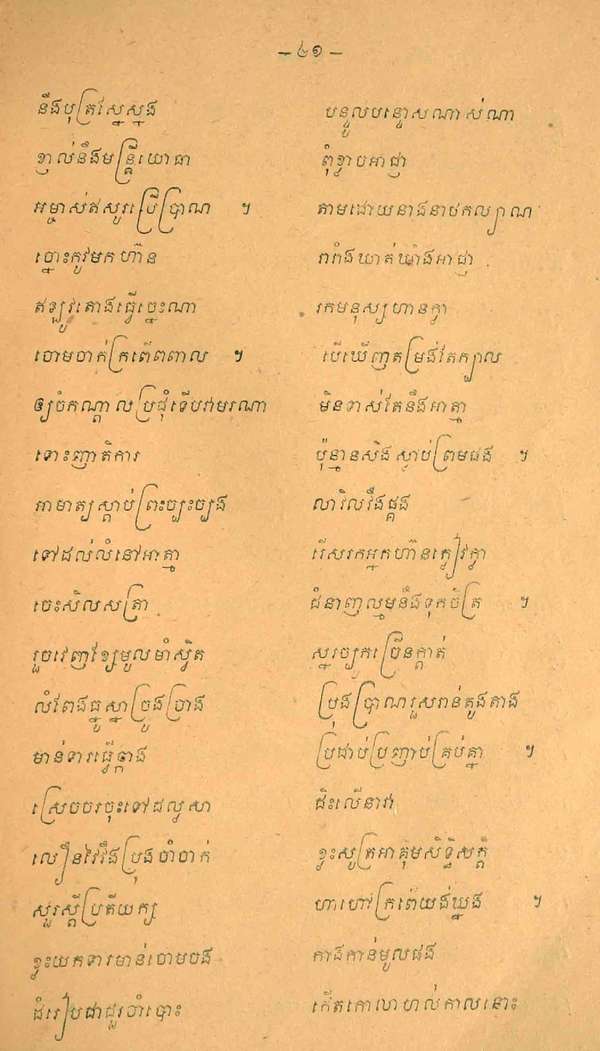 — ៤១ —
នឹងបុត្រស្នែស្នង បន្ទូលបន្ទោសណាស់ណា
ខ្ញាល់នឹងមន្ត្រីយោធា ពុំខ្លាចអាជ្ញា
អម្ចាស់ឥសូរប្រើប្រាណ ។ តាមដោយនាងនាថកល្យាណ
ច្នោះកូវមកហ៊ាន រារាំងឃាត់ឃាំងអាជ្ញា
ឥឡូវតោងធ្វើច្នេះណា រកមនុស្សហានក្លា
ចោមចាក់ក្រពើពពាល ។ បើឃើញតម្រង់តែក្បាល
ឲ្យចំកណ្ដាលប្រជុំទើបវាមរណា មិនទាស់តែនឹងអាត្មា
ទោះញាតិការ ប៉ុន្មានសឹងស្លាប់ព្រមផង ។
អាមាត្យស្ដាប់ព្រះច្បះច្បង លាវិលវឹងផ្គង
ទៅដល់លំនៅអាត្មា រើសរកអ្នកហ៊ានក្លៀវក្លា
ចេះសិលសត្រា ជំនាញល្មមនឹងទុកចិត្រ ។
រួចវេញខ្សែមូលមាំស្វិត ស្នរច្បូកច្រើនក្ដាត់
លំពែងធ្នូស្នាច្រូងច្រាង ប្រុងប្រាណរួសរាន់តូងតាង
មាន់ទារធ្វើឆ្កាង ប្រដាប់ប្រញាប់គ្រប់គ្នា ។
ស្រេចចរចុះទៅជលសា ជិះលើនាវា
លឿនវៃវឹងប្រុងចាំចាក់ ខ្លះសូត្រអាគុមសិទ្ធិសក្ដិ
សួរស្ដីប្រតីយក្ស ហាហៅក្រពើយង់ឃ្នង ។
ខ្លះយកទារមាន់ចោមចង កាងកាន់មូលផង
ជំរៀបជាជួរចាំបោះ កើតកោលាហល់កាលនោះ